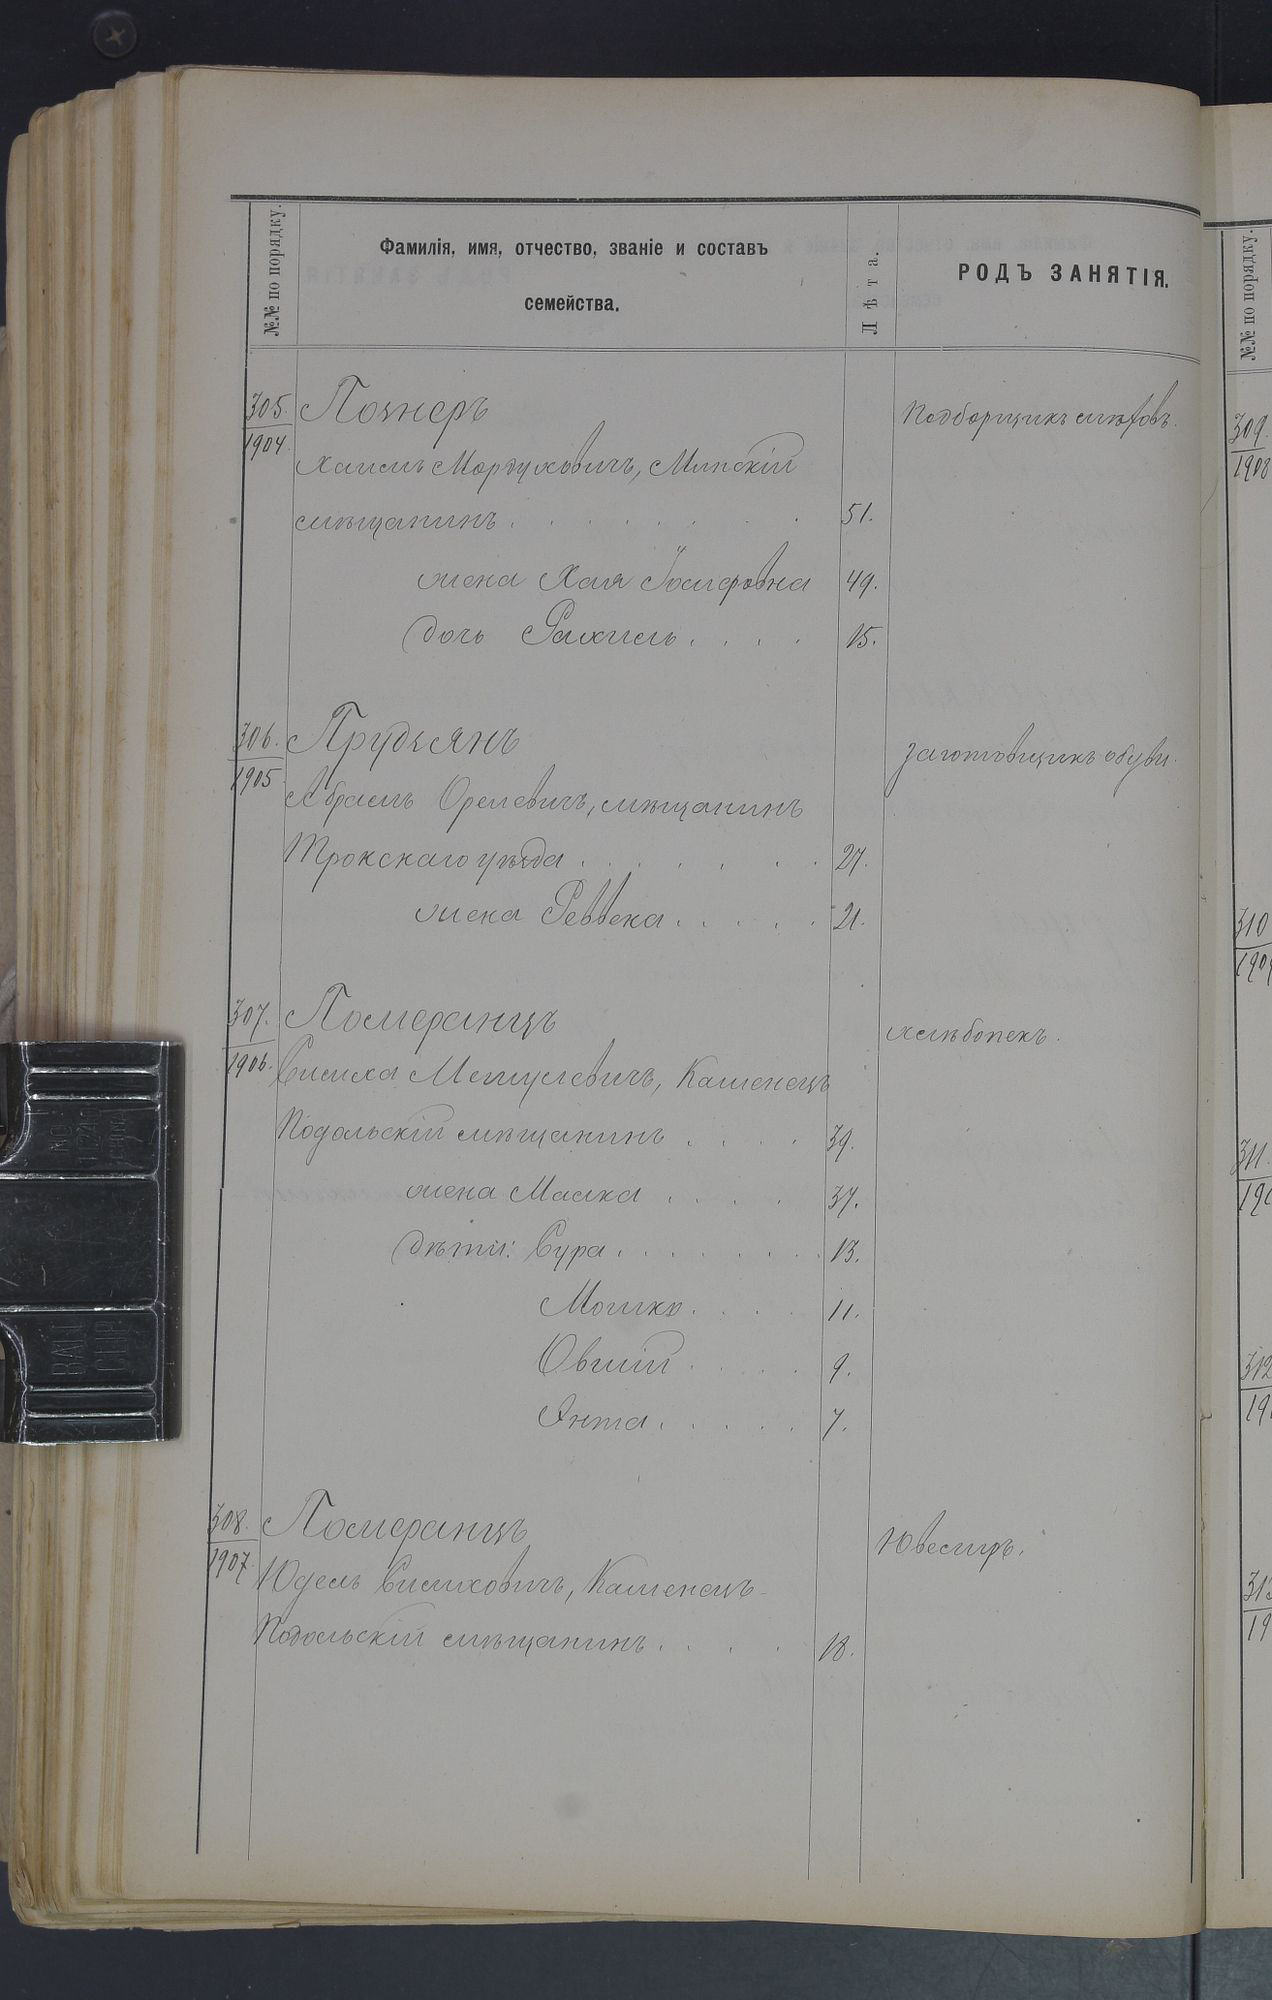 №№ по порядку.
Фамилія, имя, отчество, званіе и составъ
семейства.
Лѣта.
РОДЪ ЗАНЯТІЯ.
305.
1904
Познеръ
Подборщикъ мѣховъ.
Хаимъ Мордуховичъ, Минскій
мѣщанинъ . . . . . . . . 51.
жена Хая Іосифовна 49.
дочь Рахиль . . . . 15.
306.
1905
Прудзянъ
Заготовщикъ обуви.
Абрамъ Орелевичъ, мѣщанинъ
Трокскаго уѣзда . . . . . . . 27.
жена Реввека . . . . . 21.
307.
1906.
Померанцъ
хлѣбопекъ.
Симха Мешулевичъ, Каменецъ
Подольскій мѣщанинъ . . . . 39.
жена Малка . . . . . 37.
дѣти: Сура . . . . . . . 13.
Мошко . . . . 11.
Овшій . . . . . 9.
Янта . . . . . 7.
308.
1907.
Померанцъ
Ювелиръ.
Юдель Симховичъ, Каменецъ-
Подольскій мѣщанинъ . . . . 18.
№№ по порядку.
309.
1908
310
311.
312
313
NO
1224
CHINA
BALL
CLIP